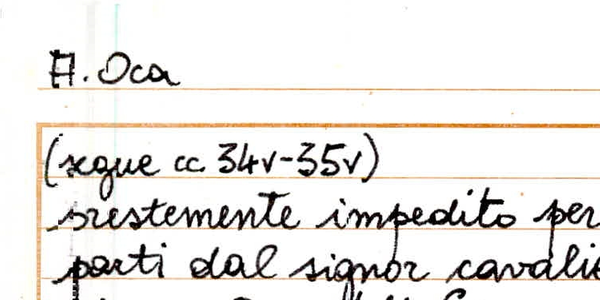 A. Oca
(segue cc. 34v-35v)
prestemente impedito per
parti dal signor cavalie